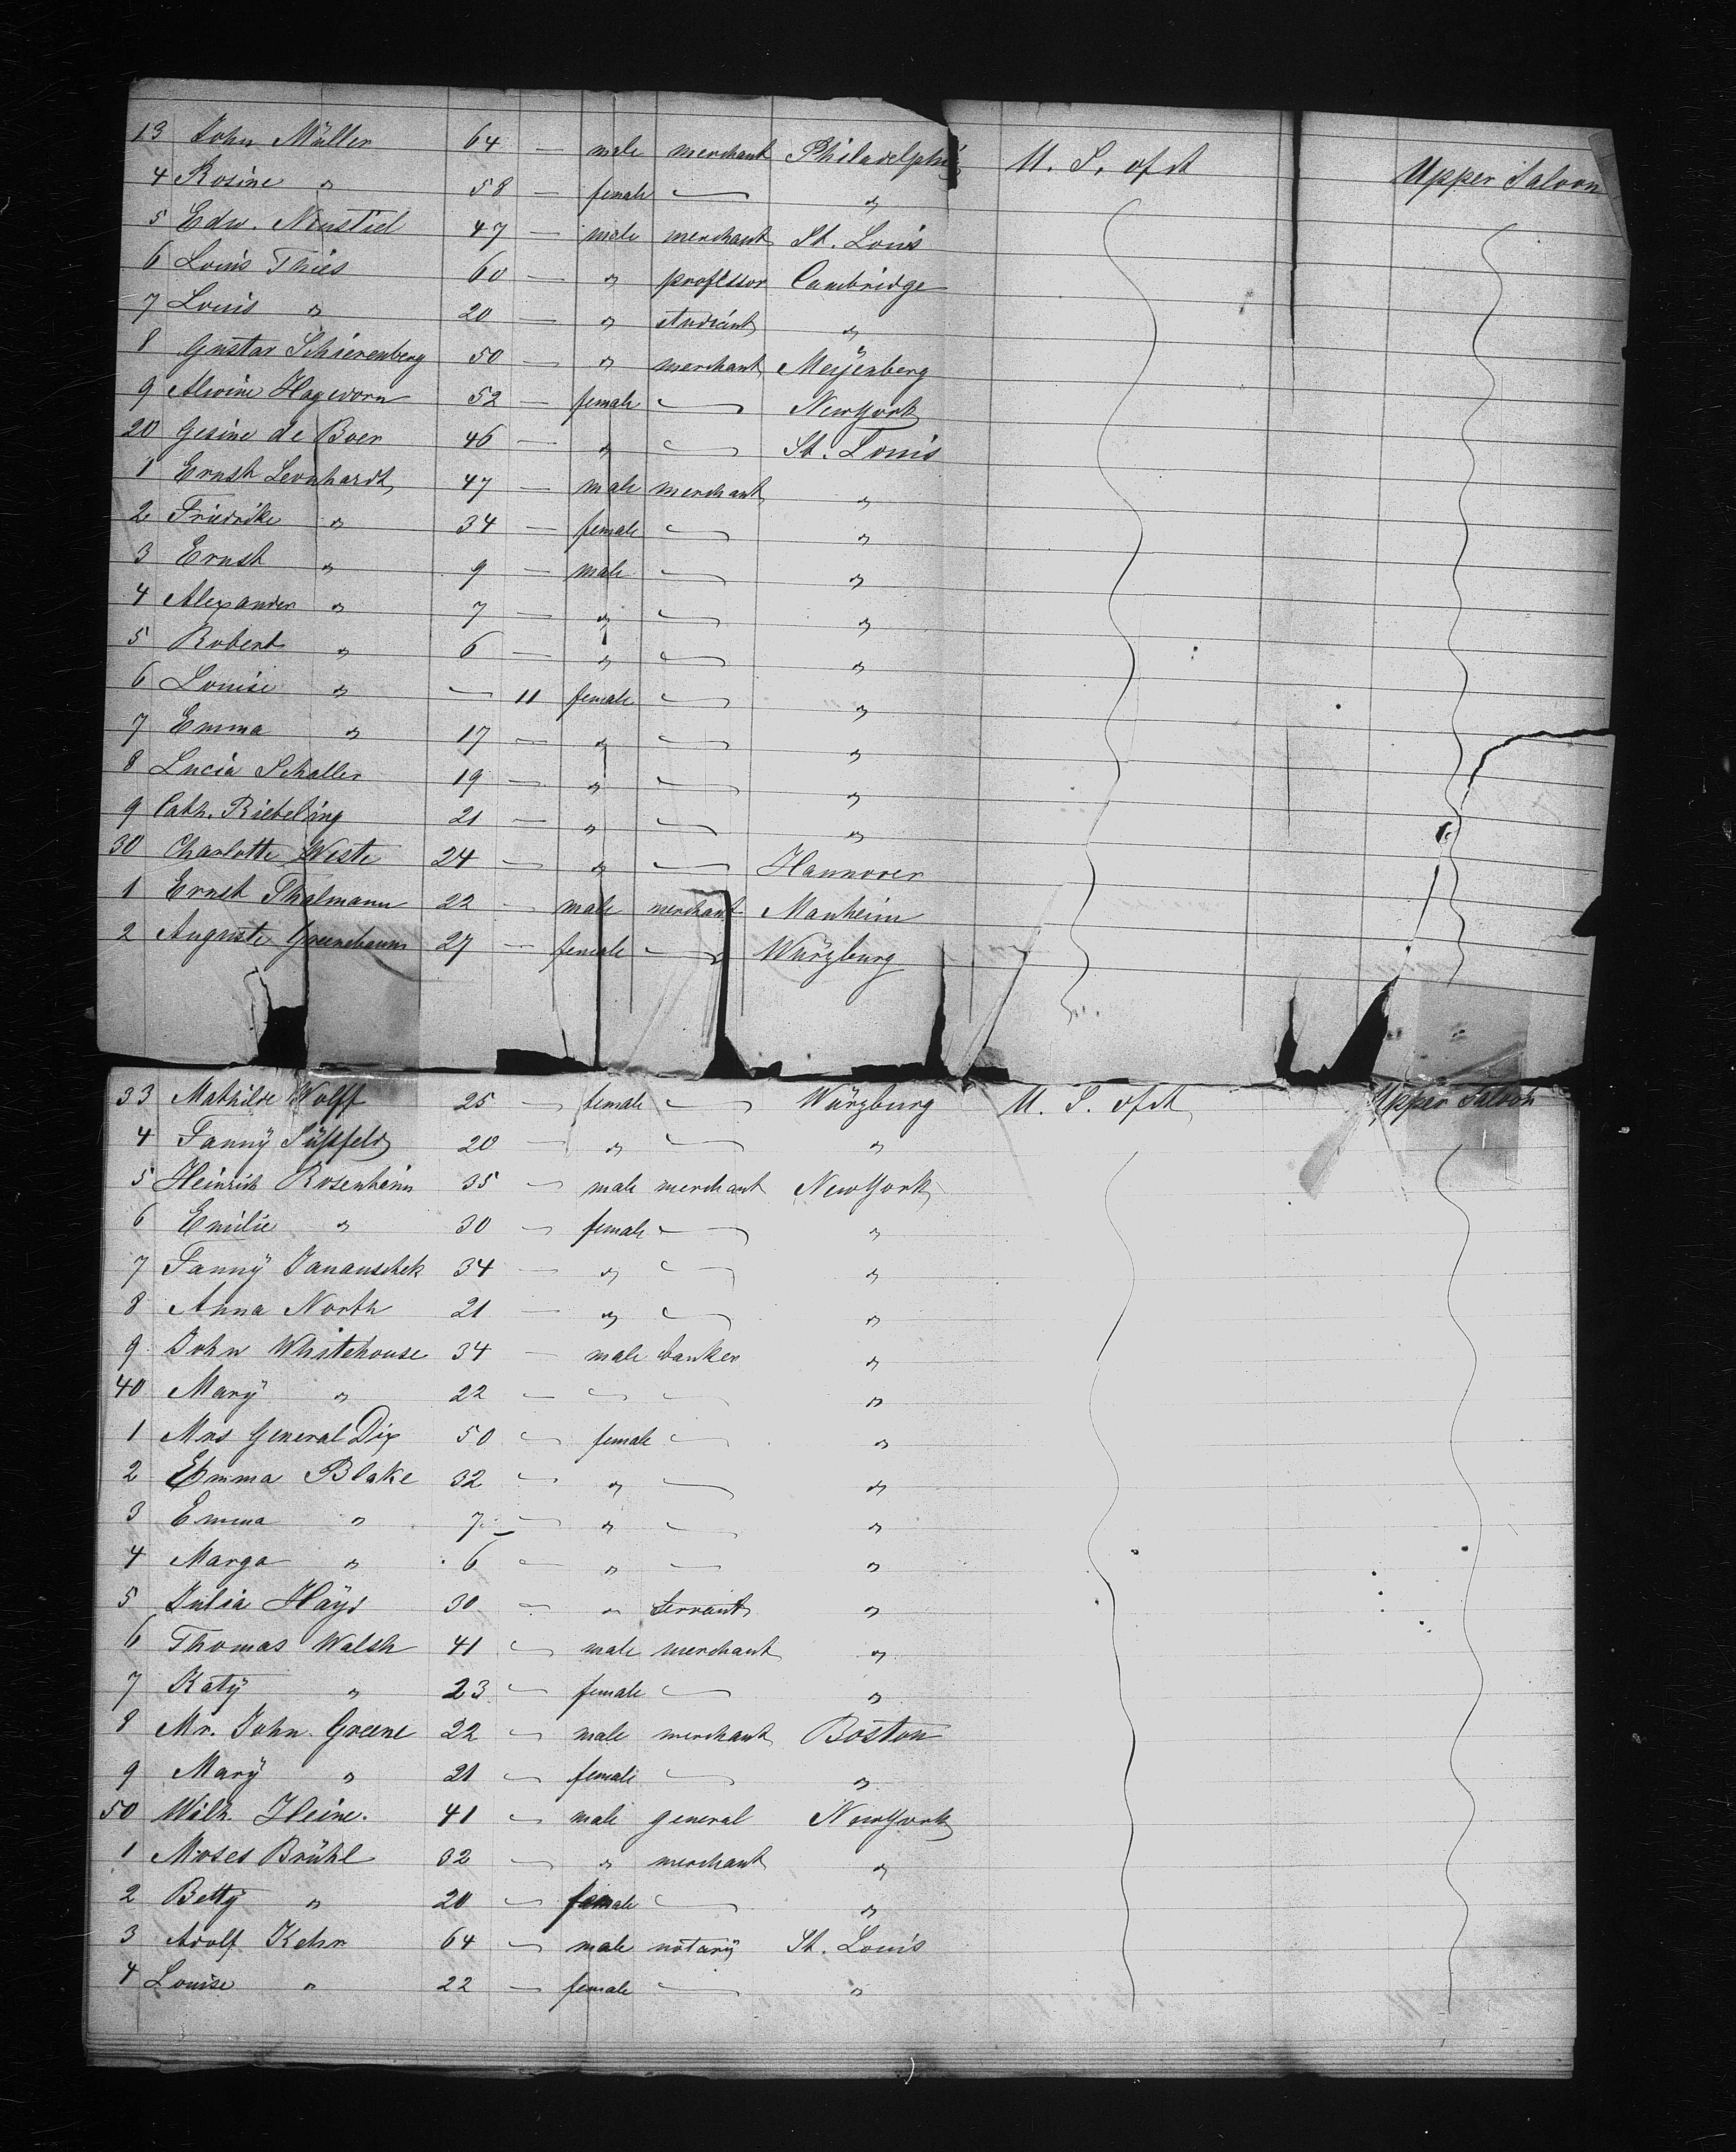 13 John Müller 64 — male merchant Philadelphi U. S. of A Upper Saloon
4 Rosine " 58 — female — "
5 Edw. Neustiel 47 — male merchant St. Louis
6 Louis Thies 60 — " professor Cambridge
7 Louis " 20 — " student "
8 Gustav Schierenberg 50 — " merchant Meyenberg
9 Alwine Hagedorn 52 — female — NewYork
20 Gesine de Boer 46 — " — St. Louis
1 Ernst Leonhardt 47 — male merchant "
2 Friedrike " 34 — female — "
3 Ernst " 9 — male — "
4 Alexander " 7 — " — "
5 Robert " 6 — " — "
6 Louise " — 11 female — "
7 Emma " 17 — " — "
8 Lucia Schaller 19 — " — "
9 Cath. Riebeling 21 — " — "
30 Charlotte Weste 24 — " — Hannover
1 Ernst Thalmann 22 — male merchant Manheim
2 Auguste Greenebaum 27 — female — Würzburg
33 Mathilde Wolff 25 — female — Würzburg U. S. of A Upper Saloon
4 Fanny Süssfeld 20 — " — "
5 Heinrich Rosenheim 35 — male merchant NewYork
6 Emilie " 30 — female — "
7 Fanny Janauschek 34 — " — "
8 Anna North 21 — " — "
9 John Whitehouse 34 — male banker "
40 Mary " 22 — — — "
1 Mrs General Dix 50 — female — "
2 Emma Blake 32 — " — "
3 Emma " 7 — " — "
4 Marga " 6 — " — "
5 Julia Hays 30 — " servant "
6 Thomas Walsh 41 — male merchant "
7 Katy " 23 — female — "
8 Mr. John Greene 22 — male merchant Boston
9 Mary " 21 — female — "
50 Wilh. Heine. 41 — male general NewYork
1 Moses Brühl 32 — " merchant "
2 Betty " 20 — female — "
3 Adolf Kehr 64 — male notary St. Louis
4 Louise " 22 — female — "